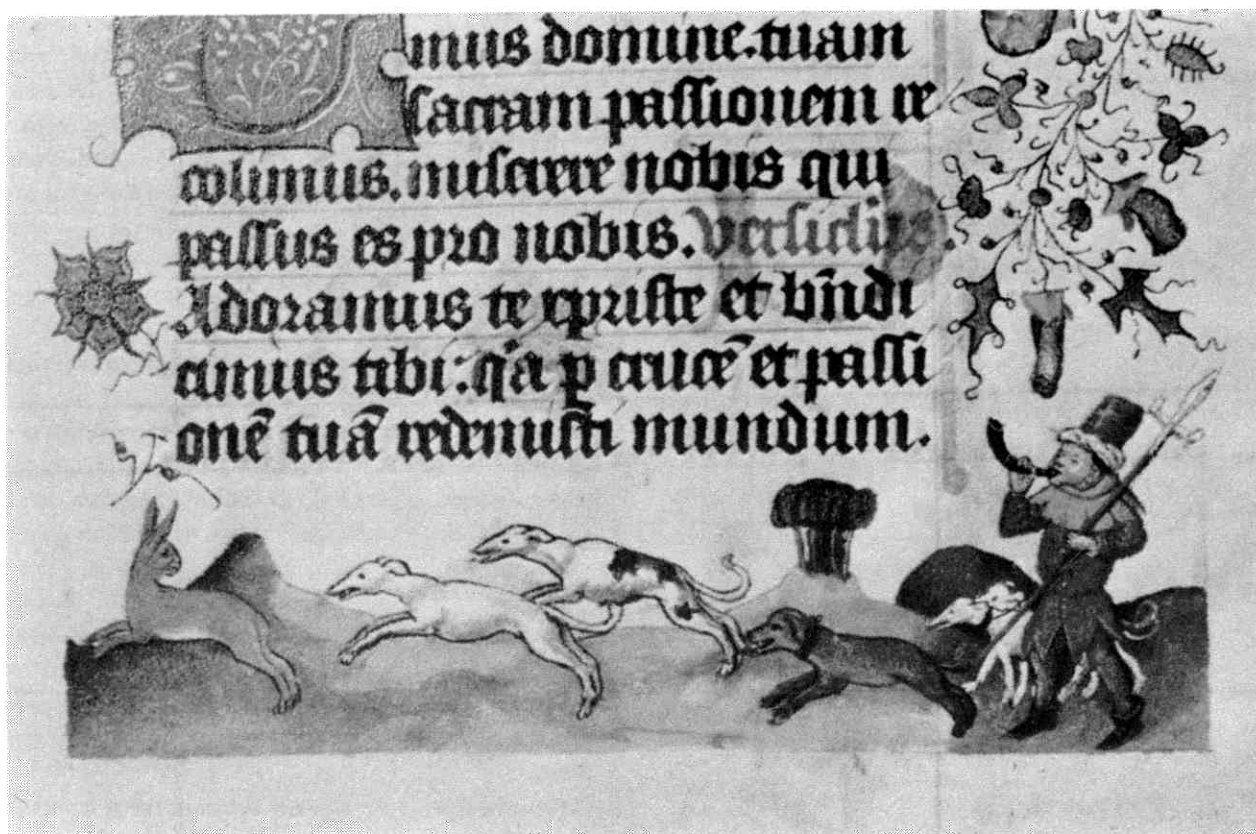 mus domine.tuam
sacram passionem re
colimus. miserere nobis qui
passus es pro nobis. Versiculus.
Adoramus te xpriste et bn̄di
cimus tibi: q̄a p crucē et passi
onē tuā redemisti mundum.